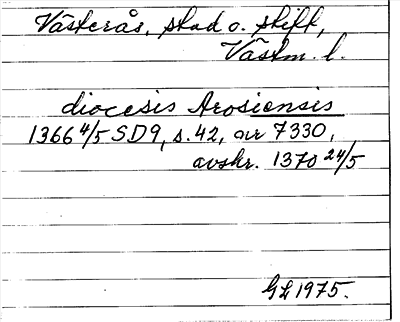 Västerås, stad o. stift,
Västm. l.
diocesis Arosiensis
1366 4/5 SD9, s. 42, nr 7330,
avskr. 1370 24/5
GL 1975.